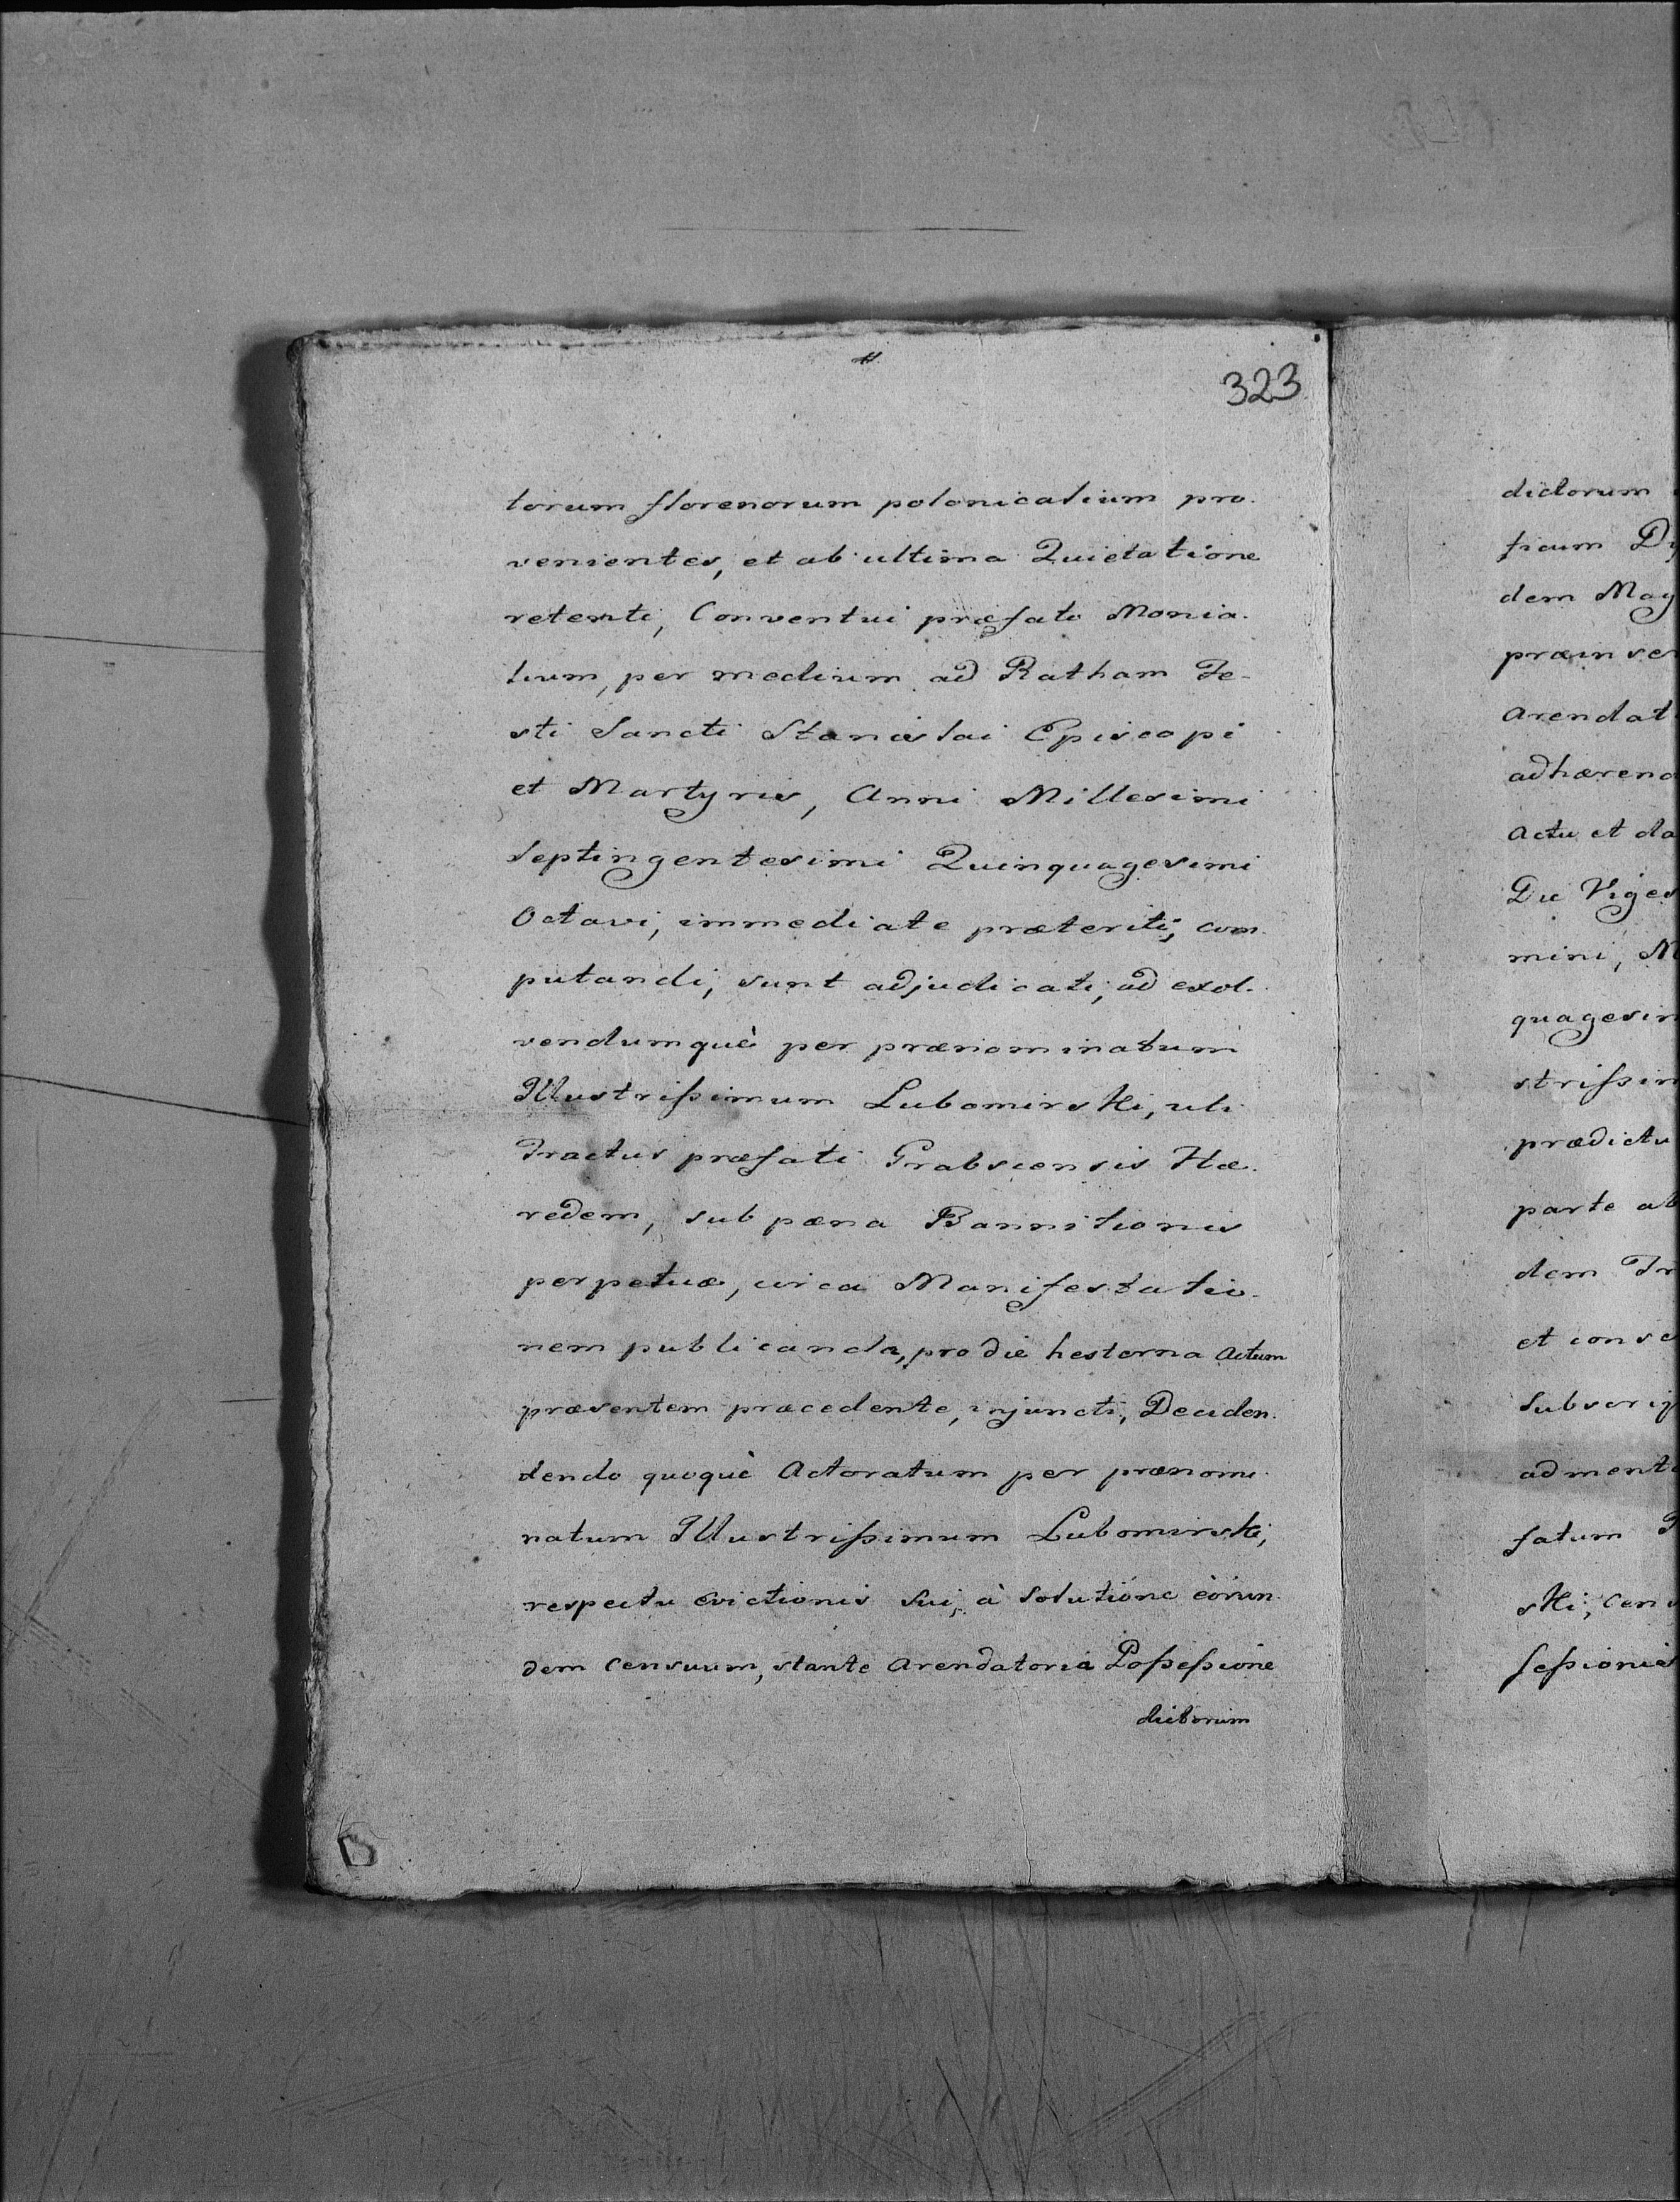 323
torum florenorum polonicalium pro-
venientes, et ab ultima Quietatione
retenti, Conventui præfato Monia-
lium, per medium ad Ratham Fe-
sti Sancti Stanislai Episcopi
et Martyris, Anni Millesimi
Septingentesimi Quinquagesimi
Octavi, immediate præteriti, com-
putandi, sunt adjudicati, ad exol-
vendumquè per prænominatum
Illustrissimum Lubomirski, uti
Tractus præfati Grabsiensis Hæ-
redem, sub pæna Bannitionis
perpetuæ, circa Manifestatio-
nem publicanda, pro die hesterna Actum
præsentem præcedente, injuncti, Deciden-
dendo quoquè Actoratum per prænomi-
natum Illustrissimum Lubomirski,
respectu evictionis sui, à Solutione eorun-
dem Censuum, stante Arendatoria Possessione
dictorum
dictorum
ficum
dem Mag
præinser
Arendat
adhærend
Actu et da
Die Viges
mini, M
quagesim
strissim
prædictu
parte ab
dem Tr
et conse
Subscrip
ad mente
fatum
ski, Cens
sessionis